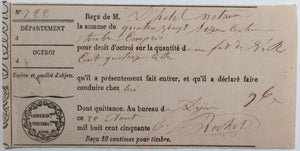 N° 122
DÉPARTEMENT
d
OCTROI
d
Espèce et quantité d'objets.
CONTRIBUT. INDIRECT.
Reçu de M.
la somme de quatre vingt seize cent
timbre compris
pour droit d'octroi sur la quantité d un fût de
Cent quatre
qu'il a présentement fait entrer, et qu'il a déclaré faire
conduire chez lui
Dont quittance. Au bureau d Dijon
ce 20 Août 96c
mil huit cent cinquante 6
Rochet
Reçu 10 centimes pour timbre.